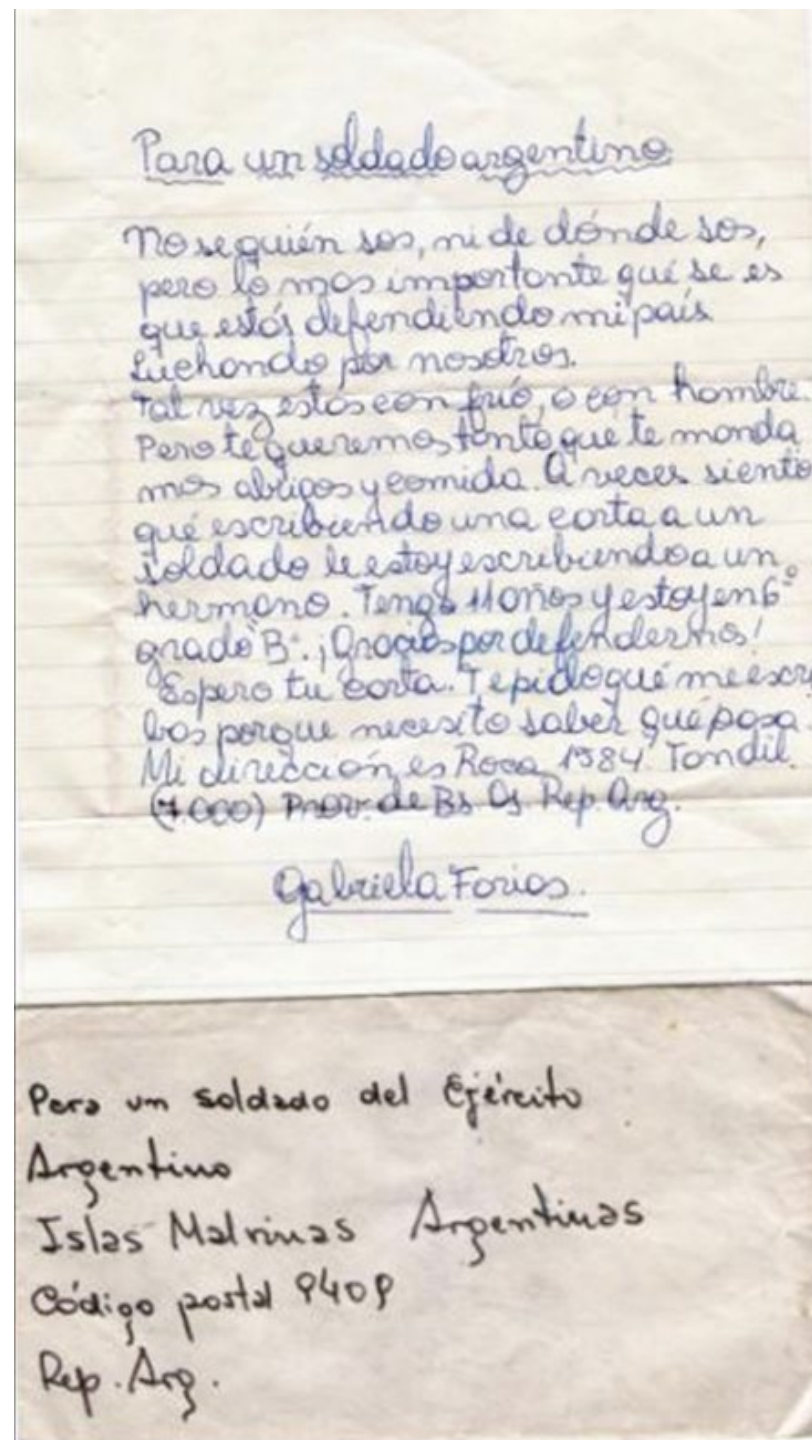 Para un soldado argentino
No se quién sos, ni de dónde sos,
pero lo mas importante qué se es
que estás defendiendo mi país
Luchando por nosotros.
Tal vez estás con frió, o con hambre.
Pero te queremos tanto que te manda
mos abrigos y comida. A veces siento
qué escribiendo una carta a un
soldado le estoy escribiendo a un
hermano. Tengo 11 años y estoy en 6º
grado "B". ¡Gracias por defendernos!
Espero tu carta. Te pido qué me escri
bas porque necesito saber qué pasa.
Mi dirección es Roca 1584 Tandil.
(7.000) Prov. de Bs As Rep. Arg.
Gabriela Farias.
Para un soldado del Ejército
Argentino
Islas Malvinas Argentinas
Código postal 9409
Rep. Arg.